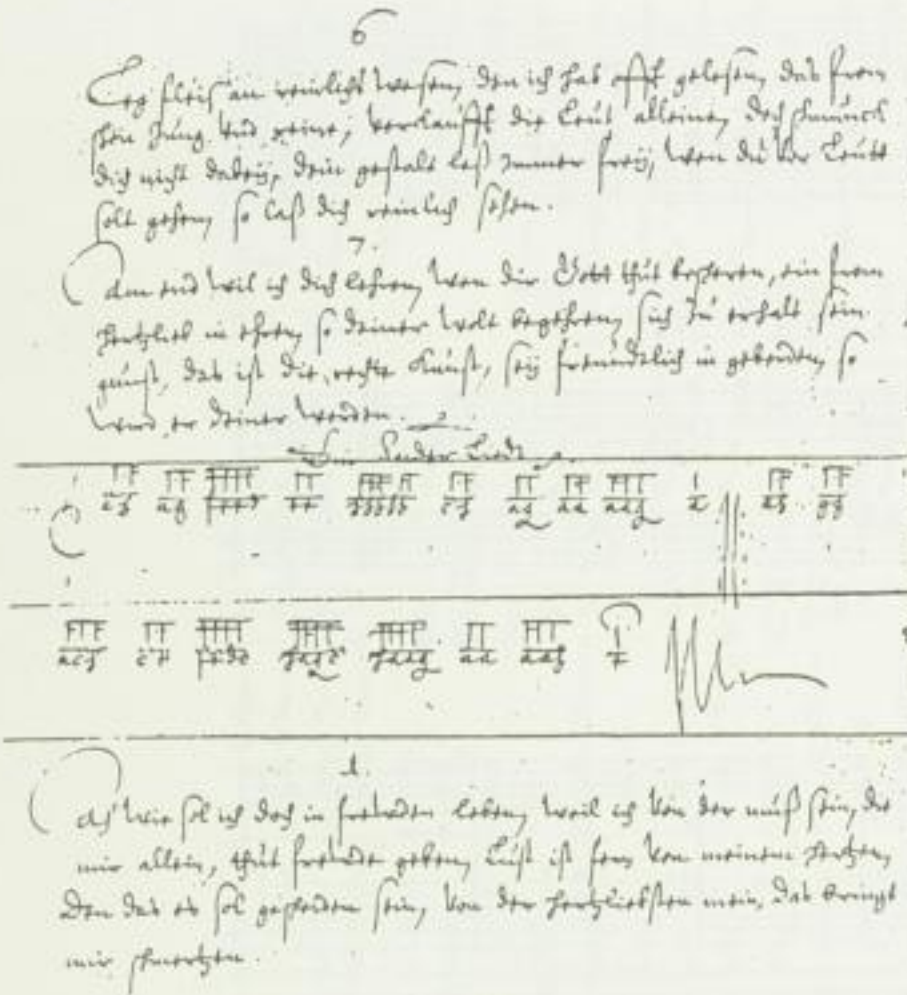 6
Leg fleis an reinlichs wesen, den ich hab offt gelesen, das from
schon Jung vnd reine, verkaufft die Leut alleine, doch schmuck
dich nicht dabeÿ, dein gestalt laß Immer freÿ, wen du vor Leutt
solt gehen, so laß dich reinlich sehen.
7.
Am end wil ich dich lehren, wen dir Gott thut bescheren, ein from
hertzlieb in ehren, so deiner wolt begehren, sich zu erhalt sein
gunst, das ist die rechte Kunst, seÿ freundtlich in geberden, so
wird er deiner werden.
Ein ander Liedt
1.
Ach wie sol ich doch in frewden leben, weil ich von der muß sein, die
mir allein, thut frewde geben, Lust ist fern von meinem hertzen,
Den das es sol gescheiden sein, von der hertzliebsten mein, das bringt
mir schmertzen.